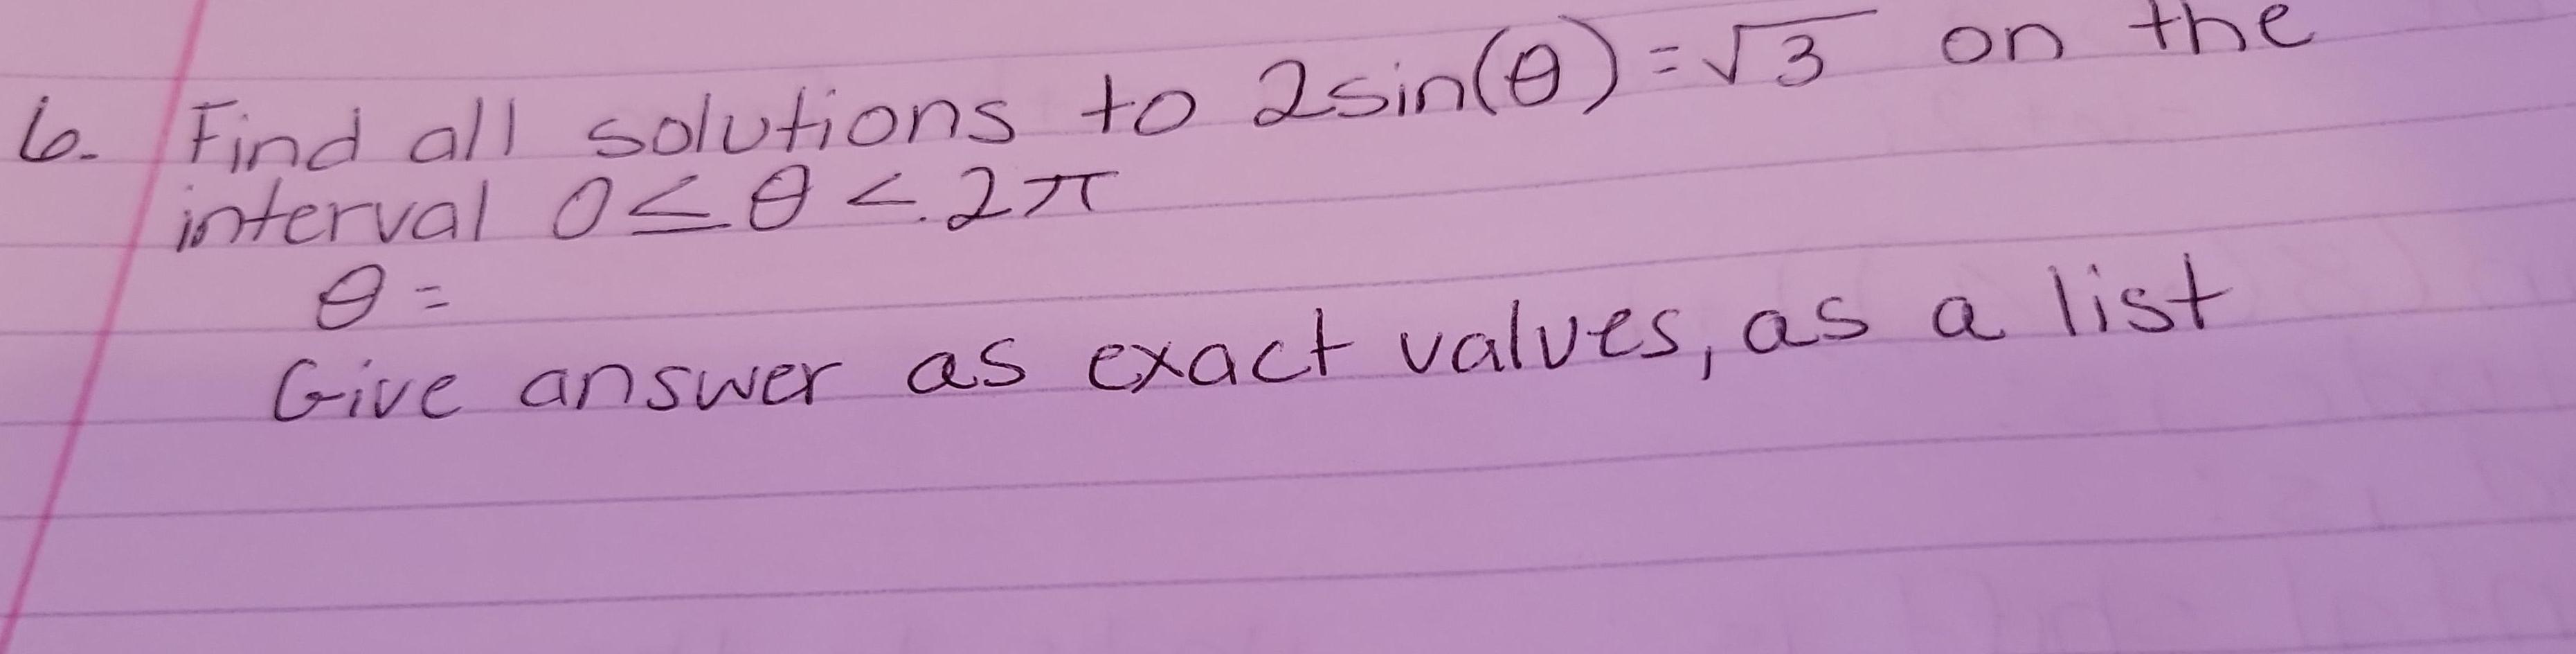 6. Find all solutions to 2sin(θ) = √3 on the
interval 0 ≤ θ < 2π
θ =
Give answer as exact values, as a list